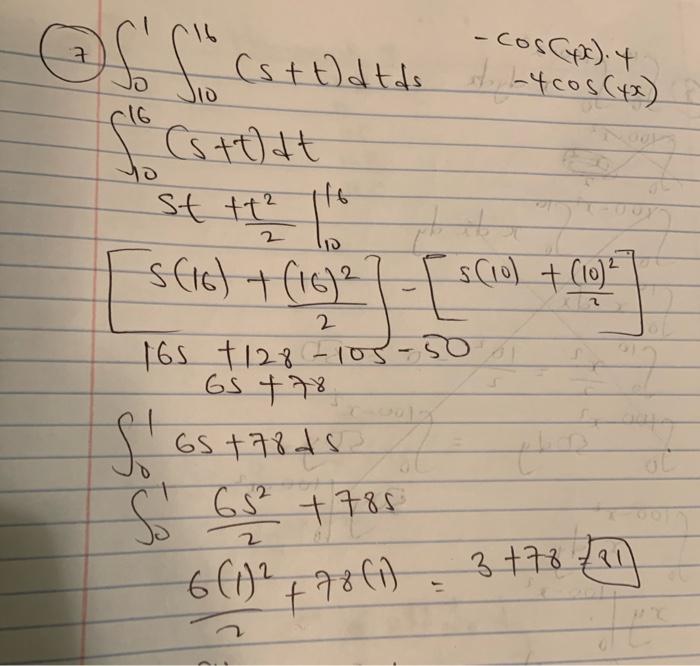 7 ∫₀¹ ∫₁₀¹⁶ (s+t)dtds
-cos(4x)·4
-4cos(4x)
∫₁₀¹⁶ (s+t)dt
st + t²/2 |₁₀¹⁶
[s(16) + (16)²/2] - [s(10) + (10)²/2]
16s +128 -10s -50
6s +78
∫₀¹ 6s+78ds
∫₀¹ 6s²/2 + 78s
6(1)²/2 + 78(1) = 3+78 = 81